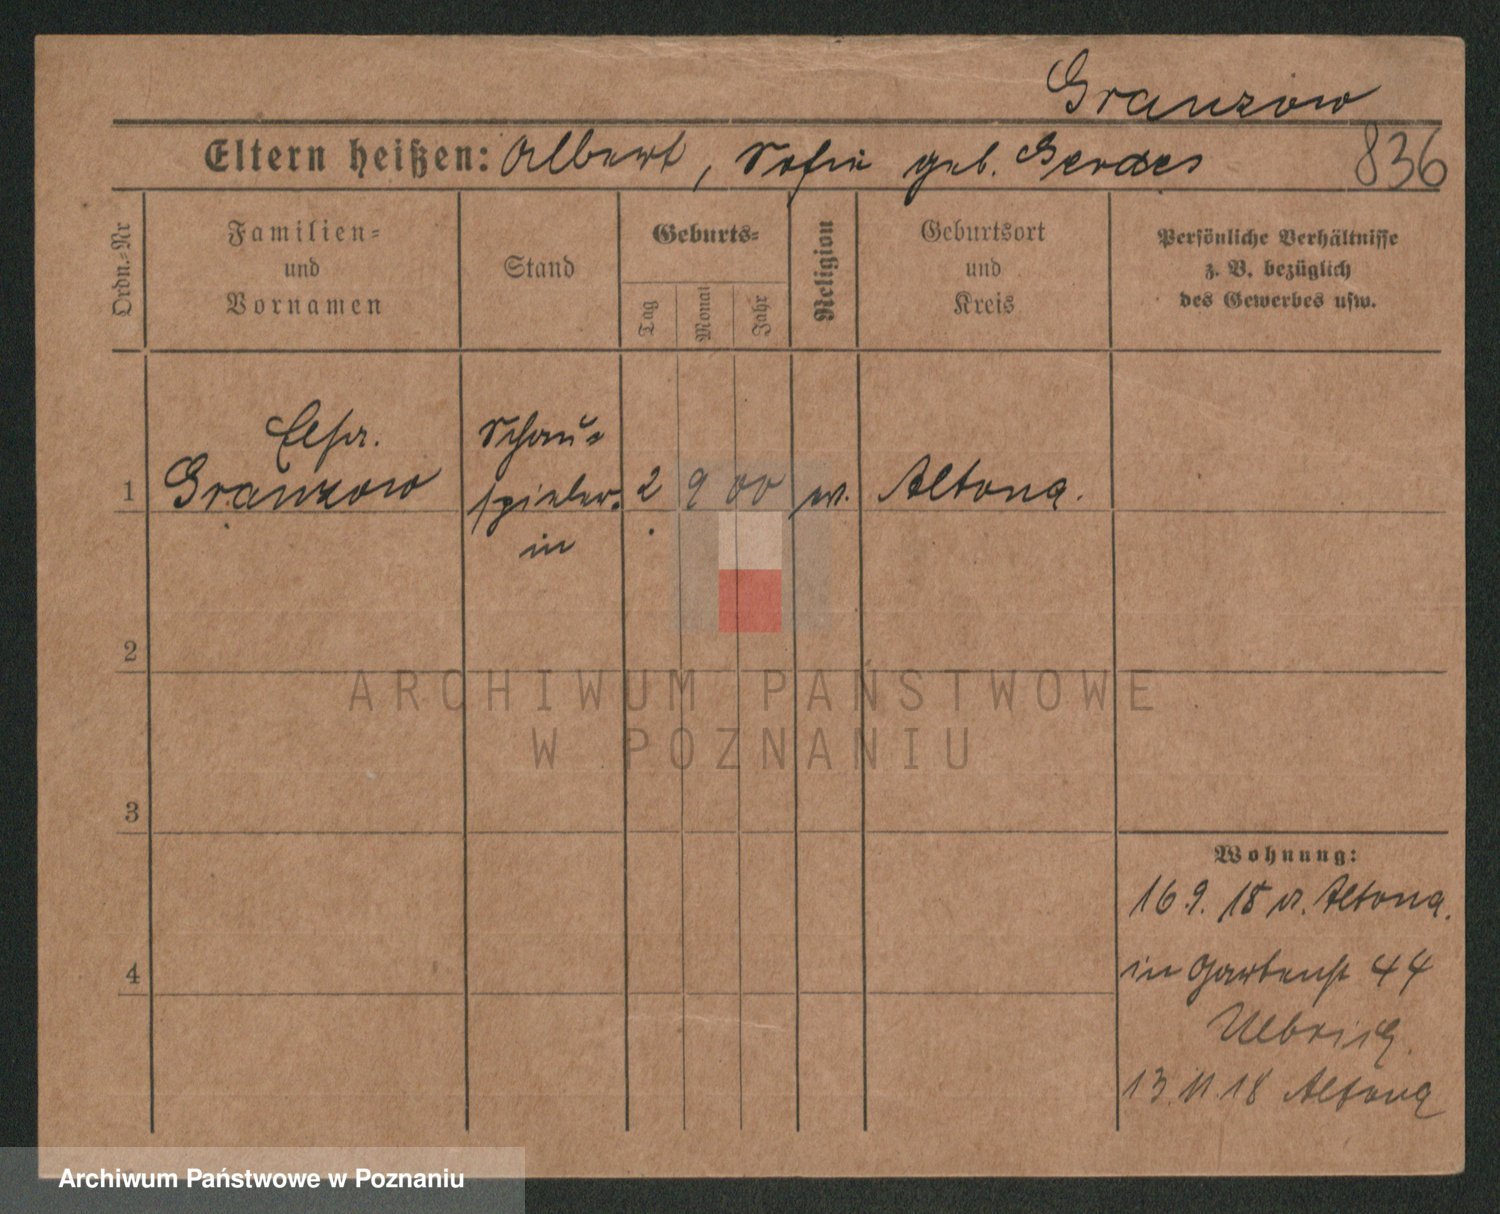 Granzow
Eltern heißen: Albert, Sofie geb. Gerdes 836
Ordn.=Nr
Familien=
und
Vornamen
Stand
Geburts=
Tag
Monat
Jahr
Religion
Geburtsort
und
Kreis
Persönliche Verhältnisse
z. B. bezüglich
des Gewerbes usw.
Elsa.
Granzow
Schau=
spieler=
in
1
2 9 00
Altona.
2
3
4
ARCHIWUM PAŃSTWOWE
W POZNANIU
Wohnung:
16.9.18 v. Altona.
in Gartenst 44
Ulbrich.
13.11.18 Altona
Archiwum Państwowe w Poznaniu